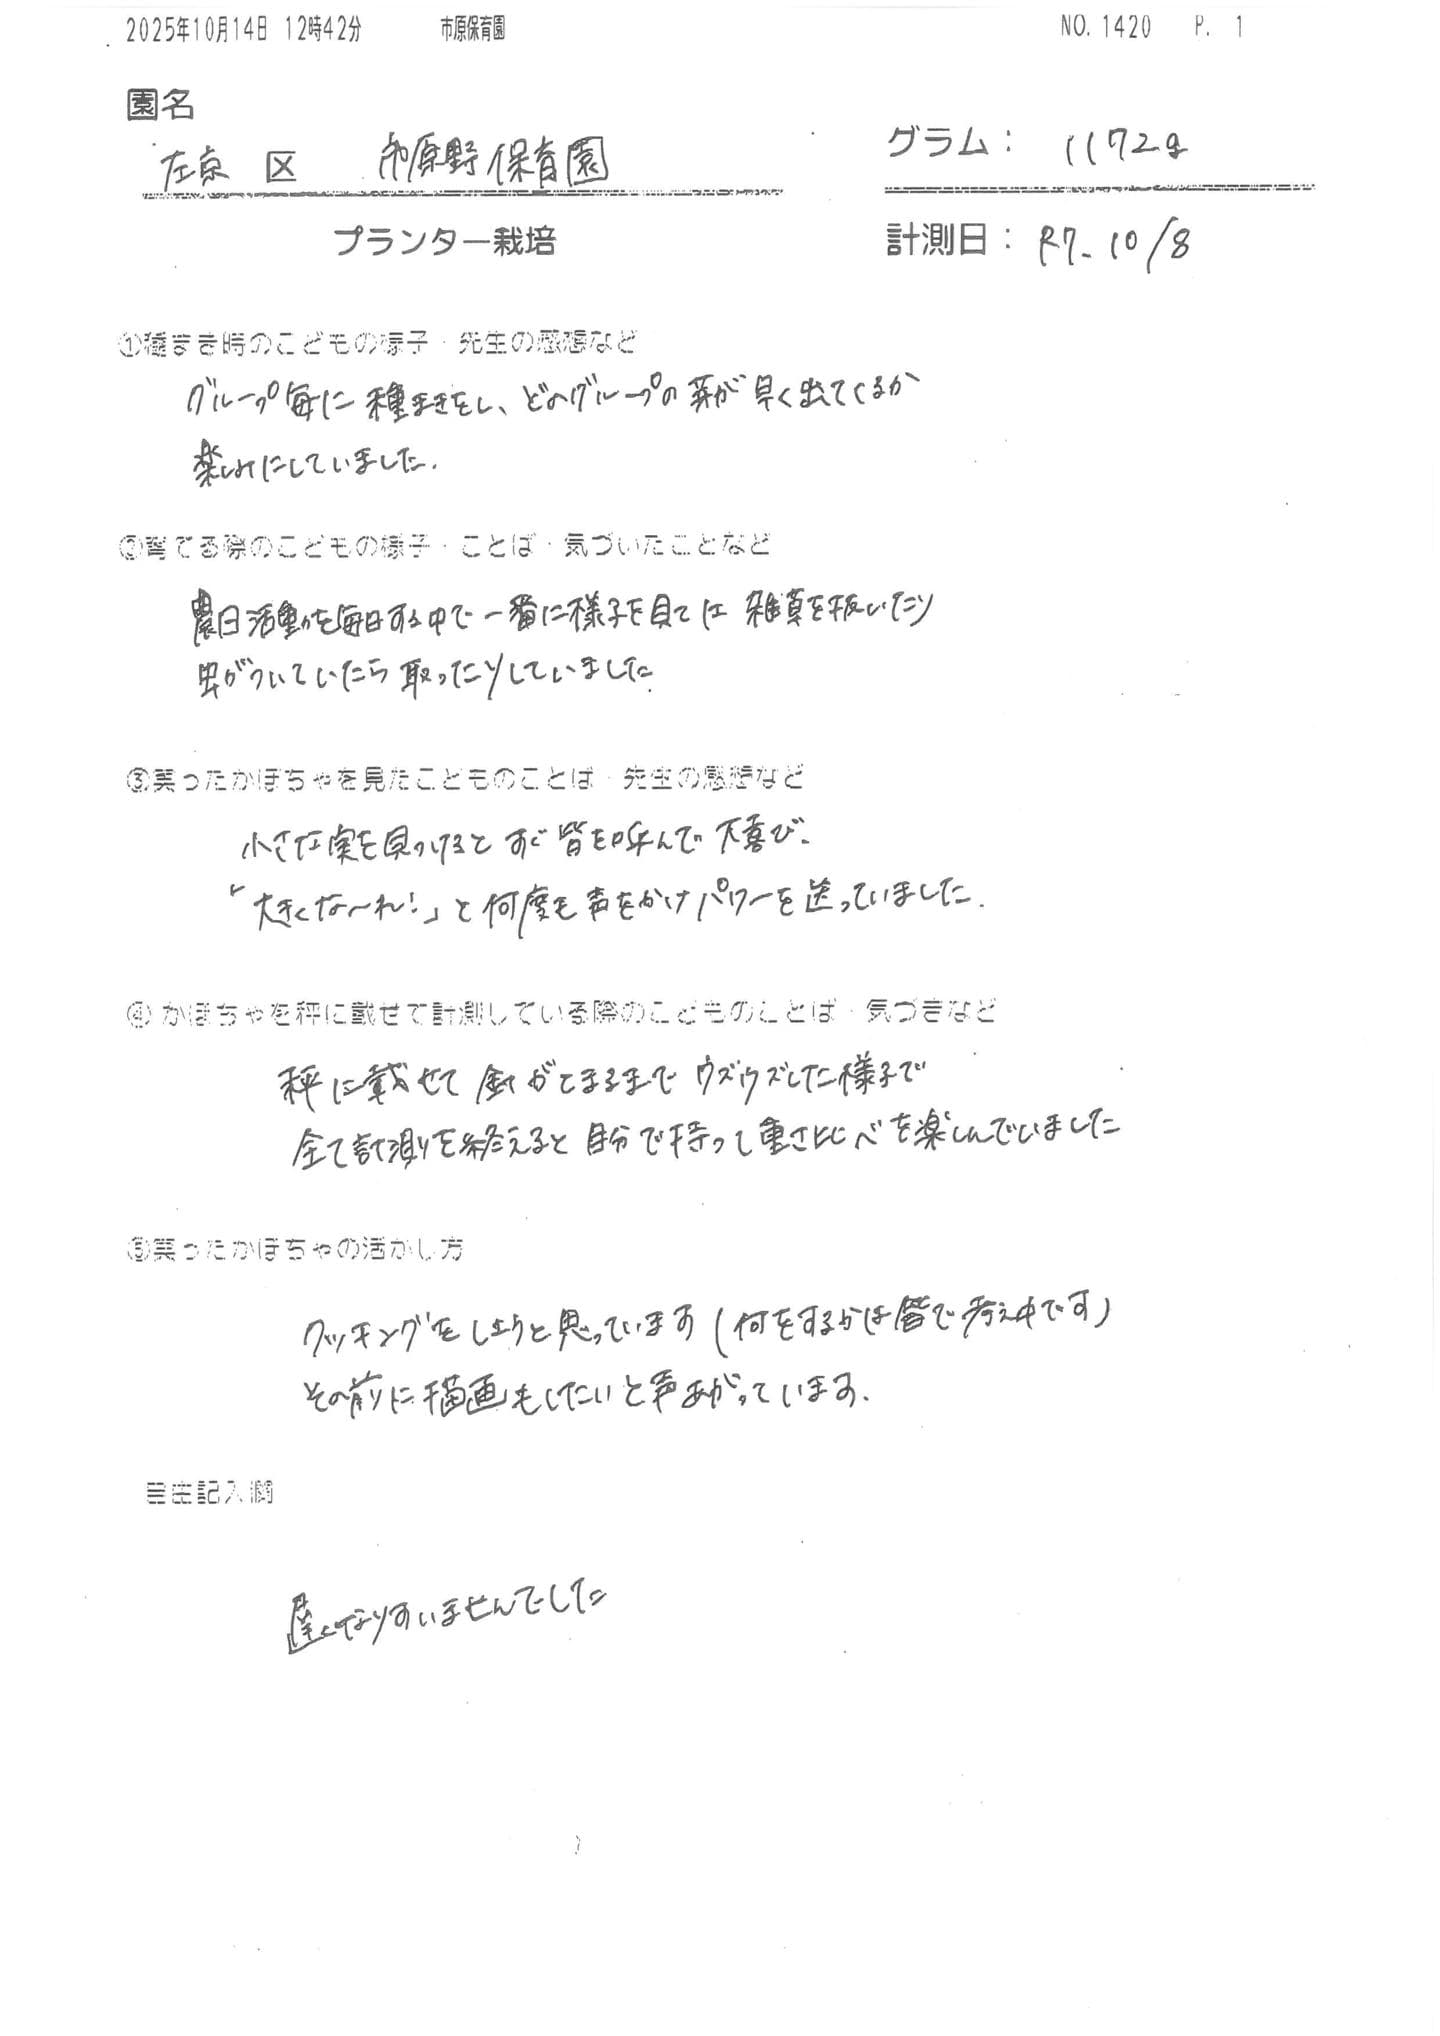 2025年10月14日 12時42分 市原保育園 NO. 1420 P. 1
園名
左京 区 市原野保育園
グラム： 1172g
プランター栽培
計測日： R7. 10/8
①種まき時のこどもの様子・先生の感想など
グループ毎に種まきをし、どのグループの芽が早く出てくるか
楽しみにしていました.
②育てる際のこどもの様子・ことば・気づいたことなど
農日活動を毎日する中で一番に様子を見ては雑草を抜いたり
虫がついていたら取ったりしていました
③実ったかぼちゃを見たこどものことば・先生の感想など
小さな実を見つけるとすぐ皆を呼んで大喜び.
「大きくな〜れ!」と何度も声をかけパワーを送っていました.
④かぼちゃを秤に載せて計測している際のこどものことば・気づきなど
秤に載せて針がとまるまでウズウズした様子で
全て計測を終えると自分で持って重さ比べを楽しんでいました
⑤実ったかぼちゃの活かし方
クッキングをしようと思っています(何をするかは皆で考え中です)
その前に描画もしたいと声あがっています.
自由記入欄
遅くなりすいませんでした